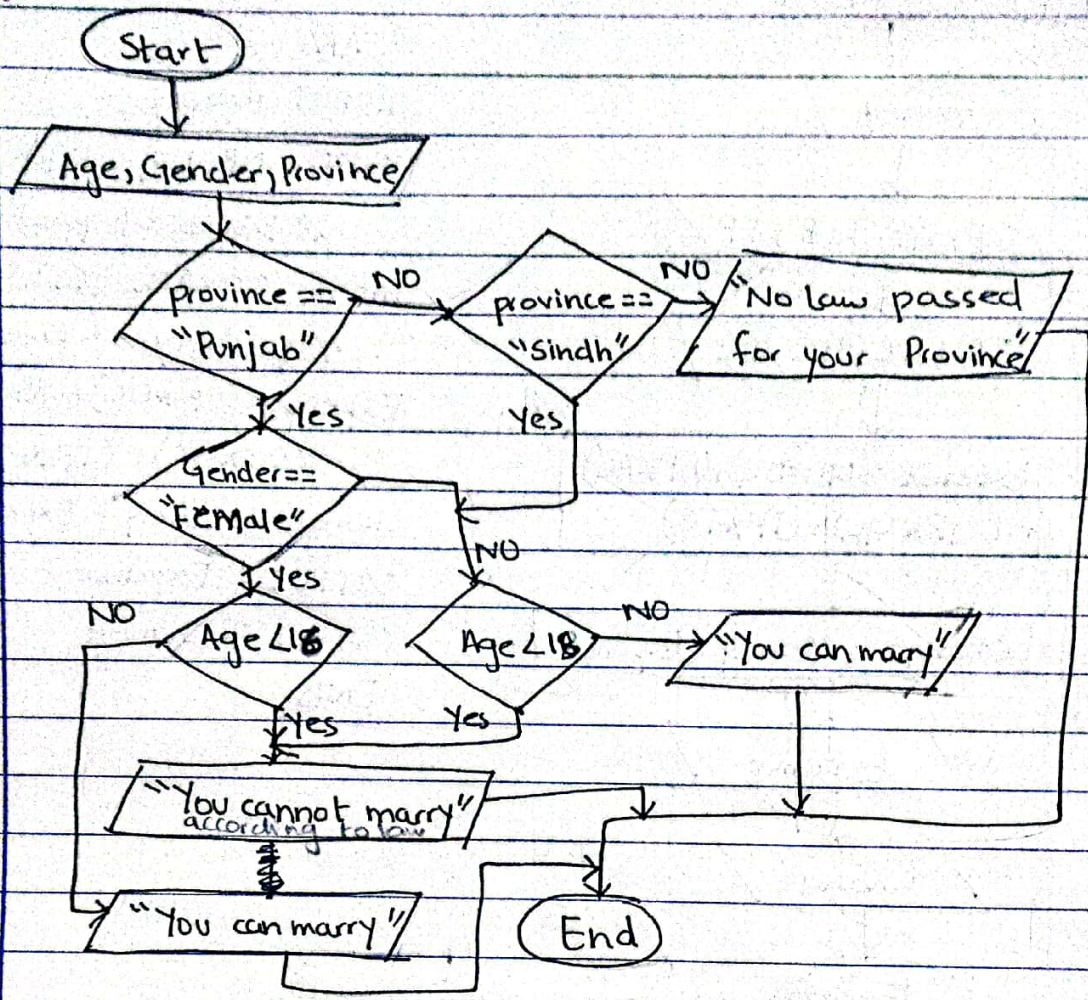 Start
Age, Gender, Province
province ==
"Punjab"
NO
province ==
"Sindh"
NO
"No law passed
for your Province"
Yes
Yes
Gender==
"Female"
NO
Yes
NO
Age<
Age<18
NO
"You can marry"
Yes
Yes
"You cannot marry"
according to law
"You can marry"
End